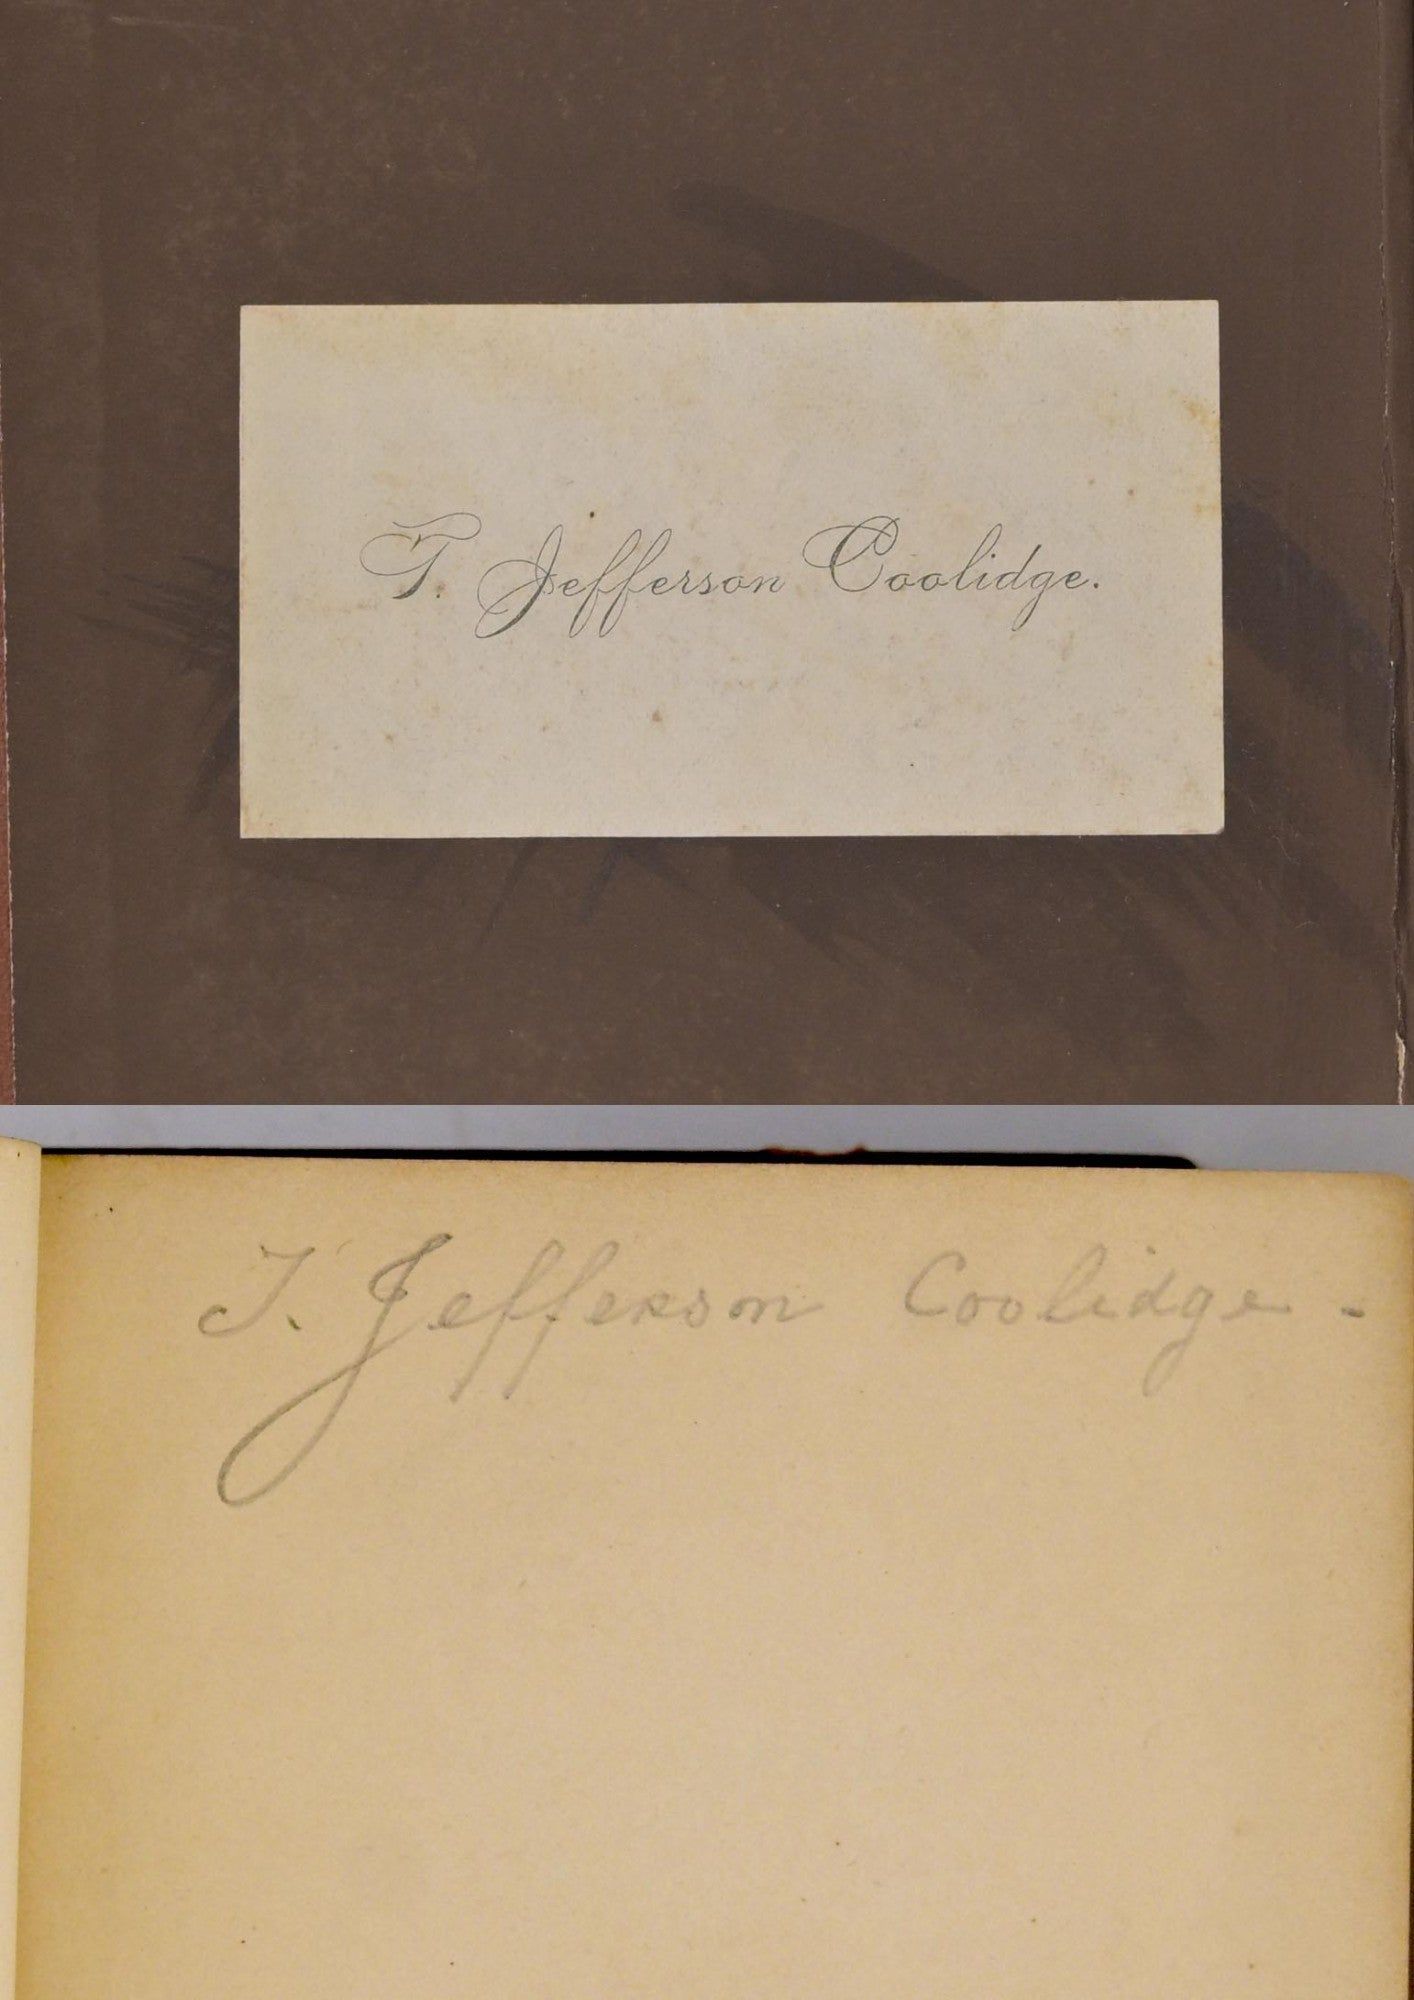 T. Jefferson Coolidge.
T. Jefferson Coolidge -